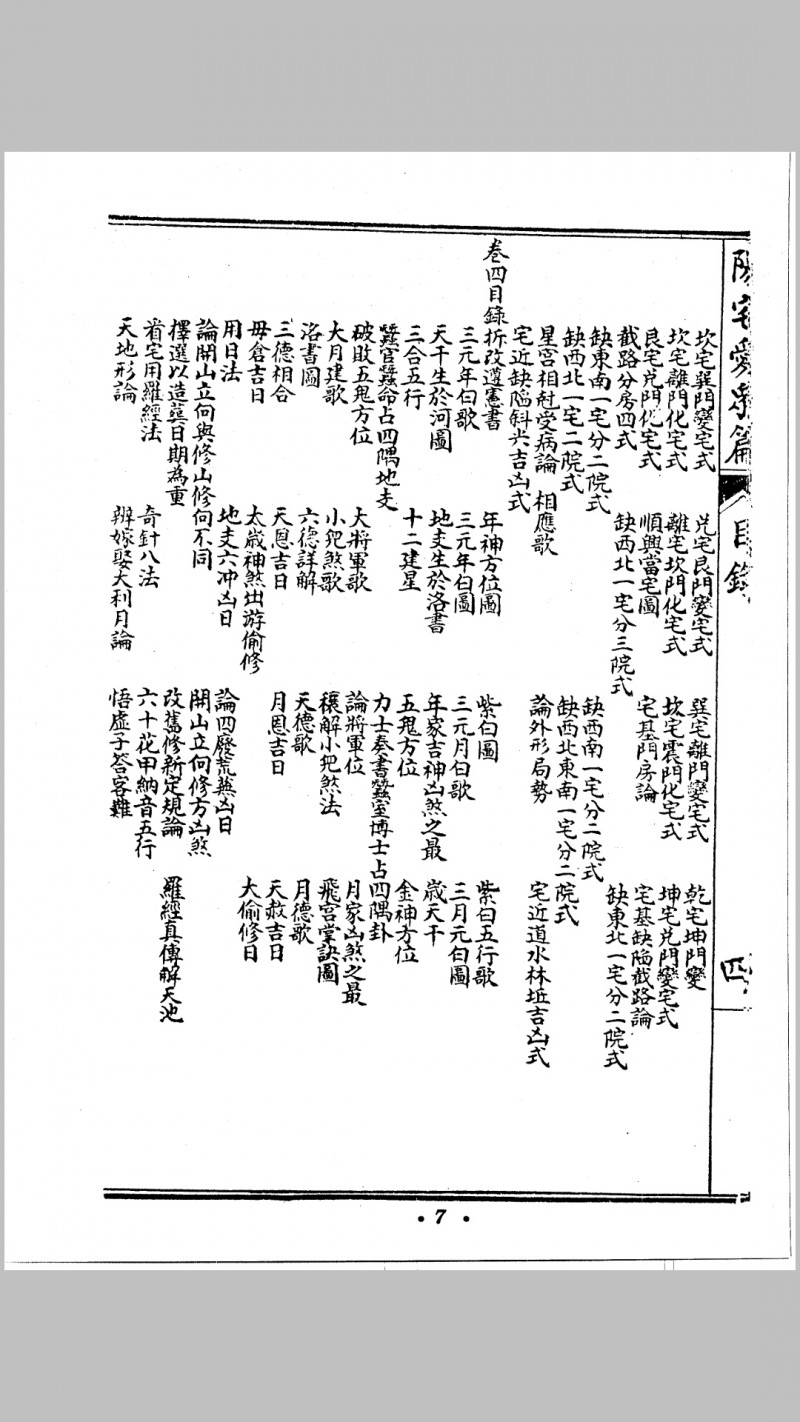 陽宅愛眾篇
目錄
四
坎宅巽門變宅式　兌宅艮門變宅式　巽宅離門變宅式　乾宅坤門變
坎宅離門化宅式　離宅坎門化宅式　坎宅震門化宅式　坤宅兌門變宅式
艮宅兌門化宅式　順興當宅圖　宅基門房論　宅基缺陷截路論
截路分房四式　缺西北一宅分三院式　缺東北一宅分二院式
缺東南一宅分二院式　缺西南一宅分二院式
缺西北一宅二院式　缺西北東南一宅分二院式
星宮相尅受病論　相應歌　論外形局勢　宅近道水林坵吉凶式
宅近缺陷斜尖吉凶式
卷四目錄折改遵憲書　年神方位圖　紫白圖　紫白五行歌
三元年白歌　三元年白圖　三元月白歌　三月元白圖
天干生於河圖　地支生於洛書　年家吉神凶煞之最　歲天干
三合五行　十二建星　五鬼方位　金神方位
蠶官蠶命占四隅地支　力士奏書蠶室博士占四隅卦
破敗五鬼方位　大將軍歌　論將軍位　月家凶煞之最
大月建歌　小兒煞歌　穰解小兒煞法　飛宮掌訣圖
洛書圖　六德詳解　天德歌　月德歌
三德相合　天恩吉日　月恩吉日　天赦吉日
毋倉吉日　太歲神煞出游偷修　大偷修日
用日法　地支六冲凶日　論四廢荒蕪凶日
論開山立向與修山修向不同　開山立向修方凶煞
擇選以造葬日期為重　改舊修新定規論　羅經真傳解天池
看宅用羅經法　奇針八法　六十花甲納音五行
天地形論　辨嫁娶大利月論　悟虛子答客難
• 7 •